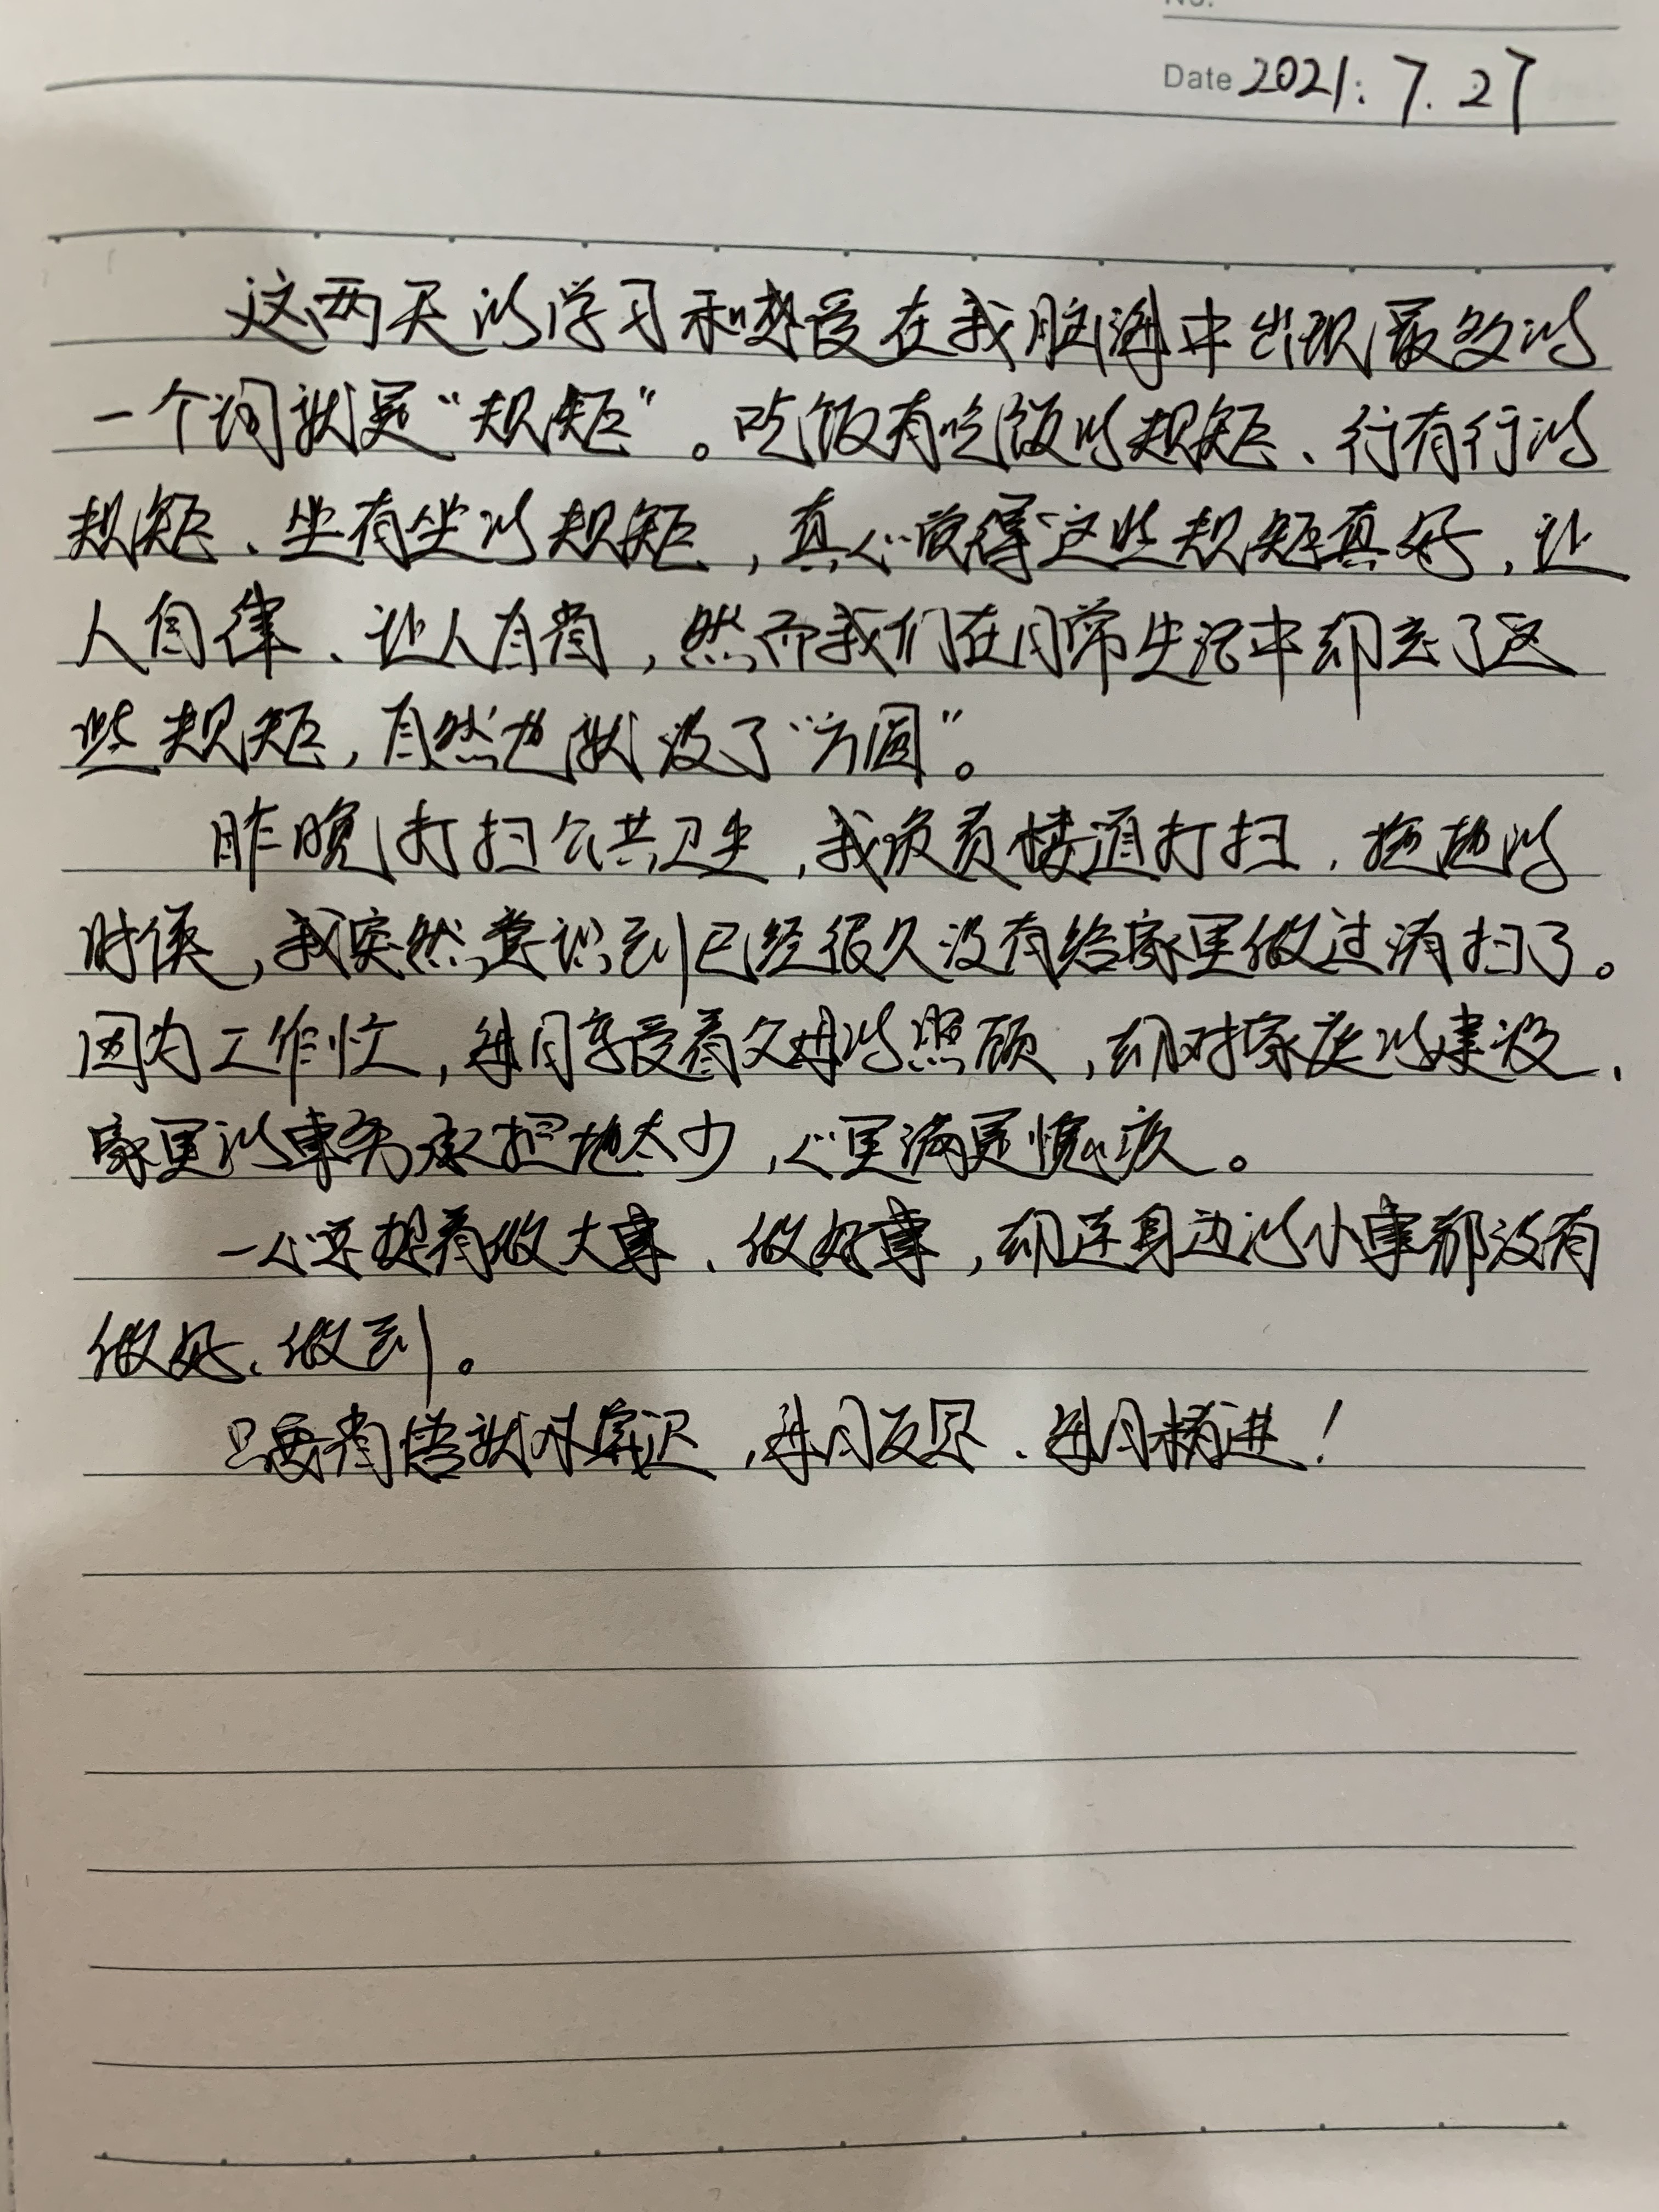 No.
Date 2021.7.27
这两天的学习和感受在我脑海中出现最多的
一个词就是“规矩”。吃饭有吃饭的规矩、行有行的
规矩、坐有坐的规矩，真心觉得这些规矩真好，让
人自律、让人自省，然而我们在日常生活中却丢了这
些规矩，自然也就没了“方圆”。
昨晚打扫公共卫生，我负责楼道打扫，拖地的
时候，我突然意识到已经很久没有给家里做过清扫了。
因为工作忙，每日享受着父母的照顾，却对家庭的建设、
家里的事务承担地太少，心里满是愧疚。
一心要想着做大事、做好事，却连身边的小事都没有
做好、做到。
只要省悟就不算迟，每日反思、每日精进！